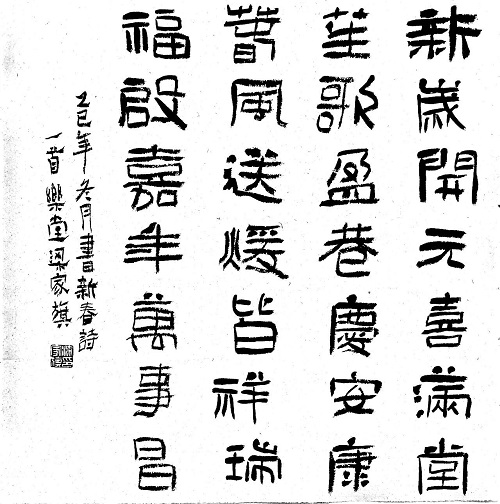 新歲開元喜滿堂
笙歌盈巷慶安康
春風送煖皆祥瑞
福啟嘉年萬事昌
乙巳年冬月書新春詩
一首樂堂梁家旗